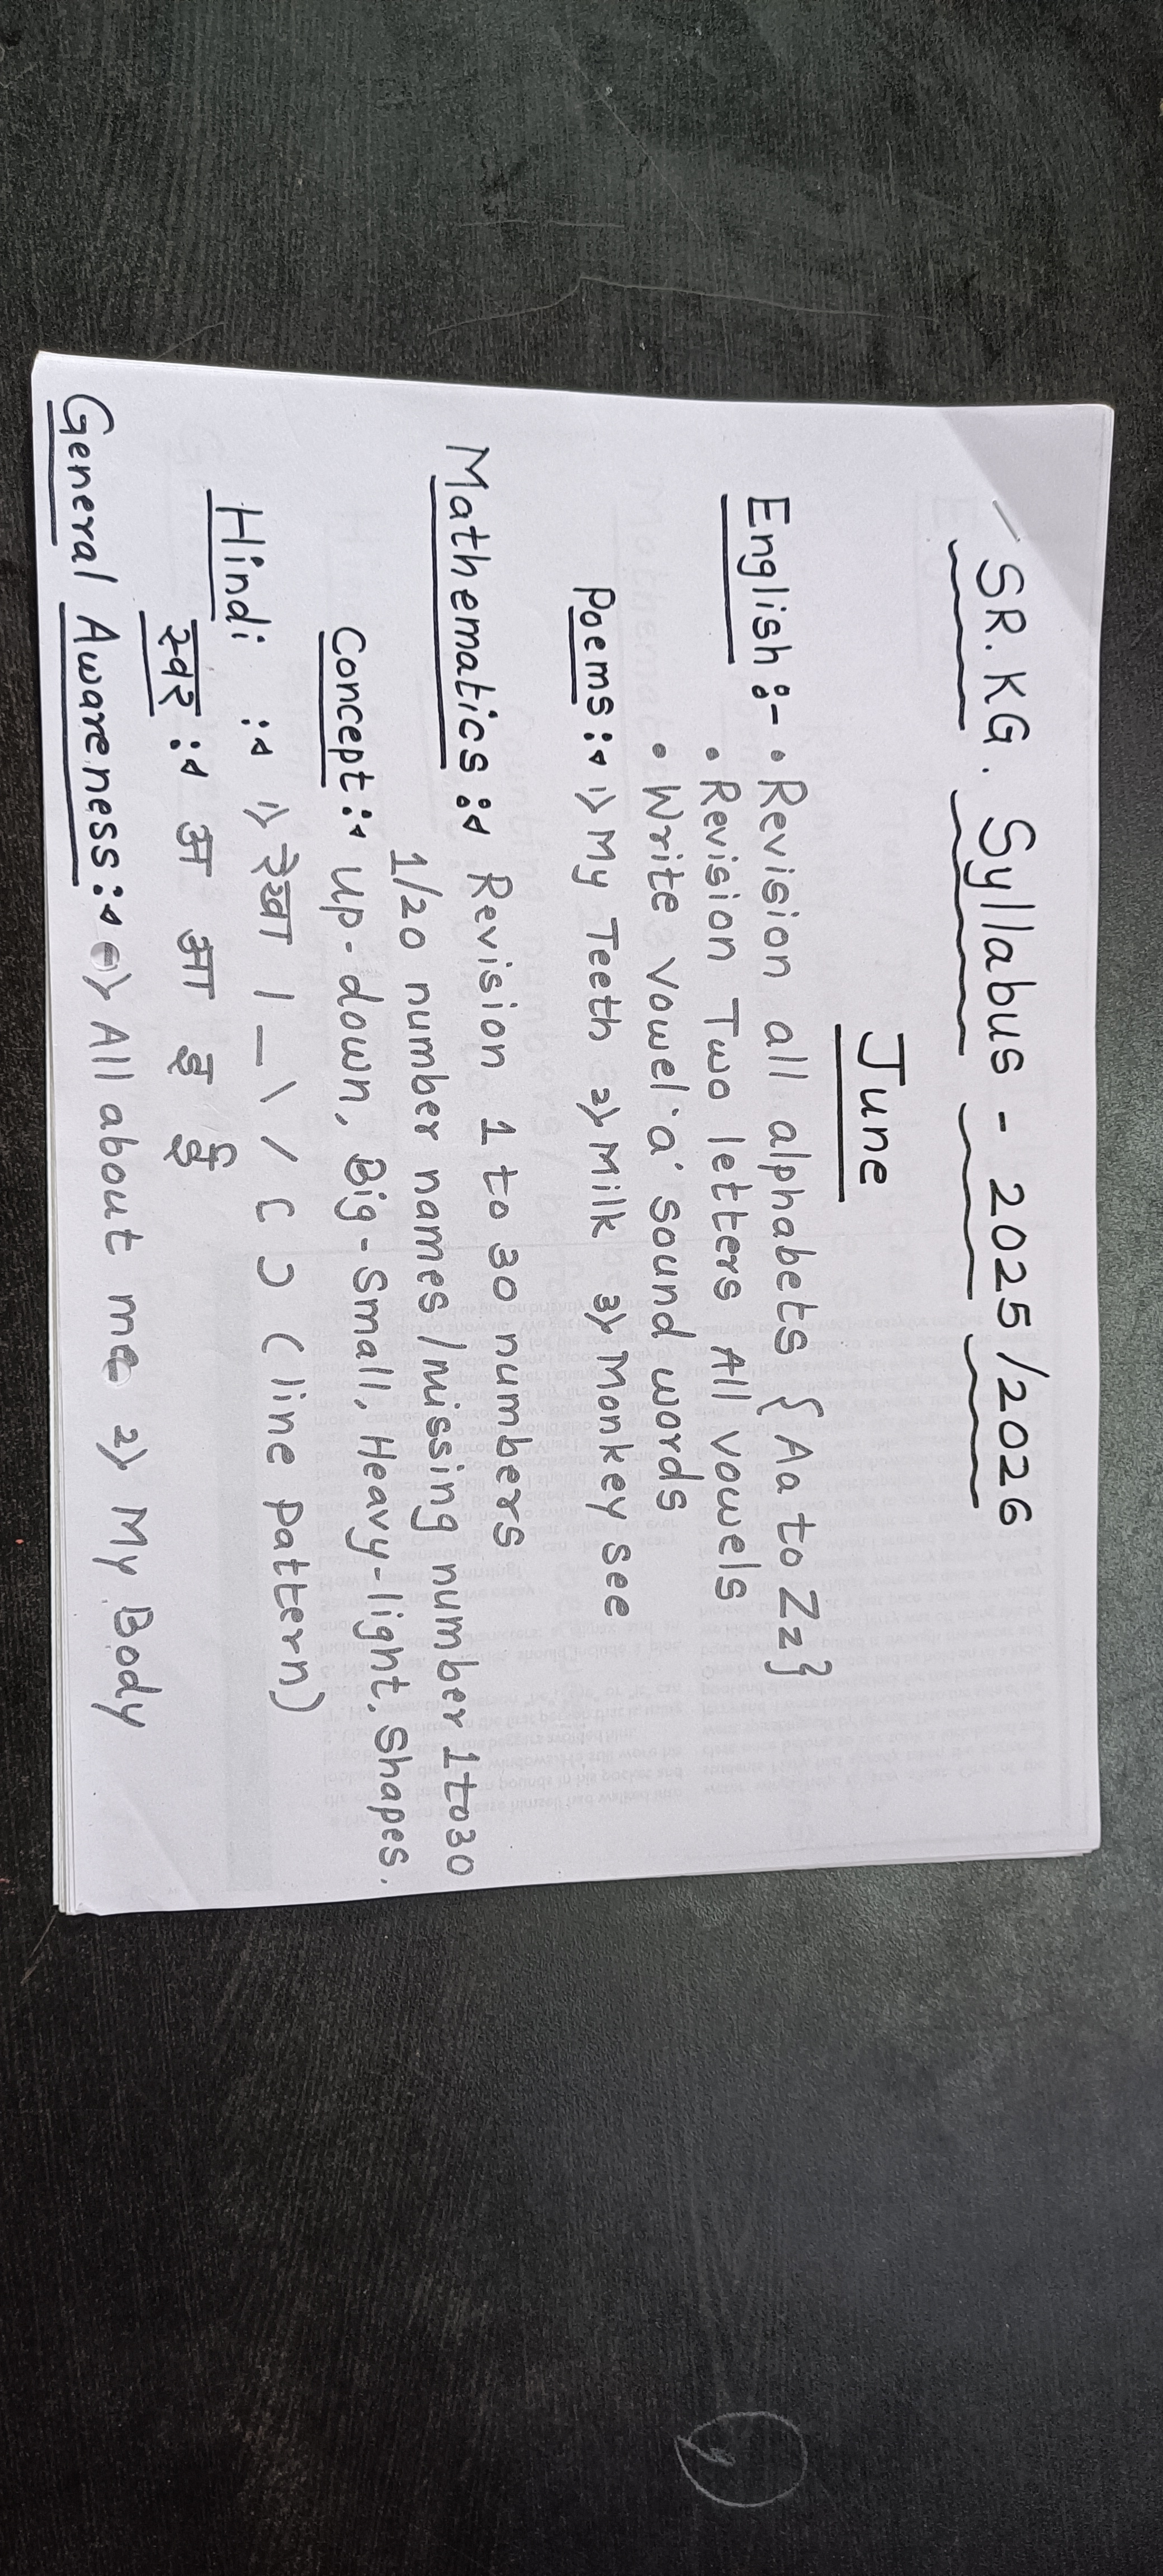 SR. KG. Syllabus - 2025/2026
June
English :- • Revision all alphabets { Aa to Zz }
• Revision Two letters All vowels
• Write vowel 'a' sound words
Poems :- 1) My Teeth 2) Milk 3) Monkey see
Mathematics :- Revision 1 to 30 numbers
1/20 number names / missing number 1 to 30
Concept :- Up-down, Big-Small, Heavy-light, Shapes.
Hindi :- 1) रेखा | — \ / ( ) (line pattern)
स्वर :- अ आ इ ई
General Awareness :- 1) All about me 2) My Body